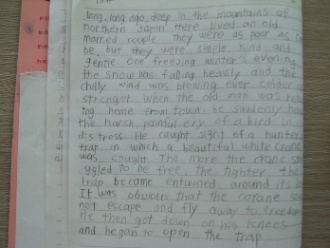 long, long ago, deep in the mountains of
northern Japan there lived an old
married couple. They were as poor as
be, but they were simple, kind and
gentle One freezing winter's evening
the snow was falling heavily and the
chilly wind was blowing ever
strongst. When the old man was
ing home from town he suddenly
the harsh, painful cry of a bird in
distress He caught sight of a hunter
trap in which a beautiful white crane
was caught. The more the crane
ggled to be free, the tighter the
trap became entwined around its
It was obvious that the carane
not escape and fly away to freedom
He then got down on his knees
and began to open the trap